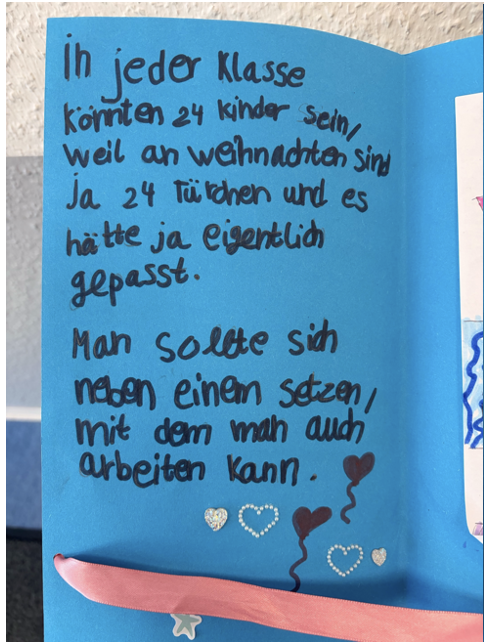 In jeder Klasse
könnten 24 kinder sein,
weil an weihnachten sind
ja 24 Türchen und es
hätte ja eigentlich
gepasst.
Man sollte sich
neben einem setzen,
mit dem man auch
arbeiten kann.